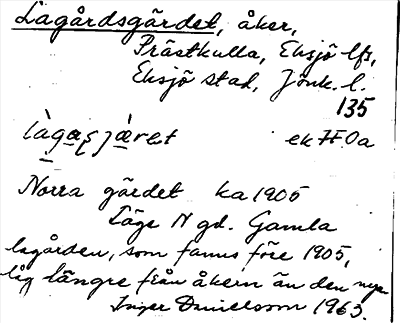 Lagårdsgärdet, åker,
Prästkulla, Eksjö lfs,
Eksjö stad, Jönk. l.
135
làgaʂjæ̀ret ek 7F0a
Norra gärdet ka 1905
Läge N gd. Gamla
lagården, som fanns före 1905,
låg längre från åkern än den nya
Inger Danielsson 1963.